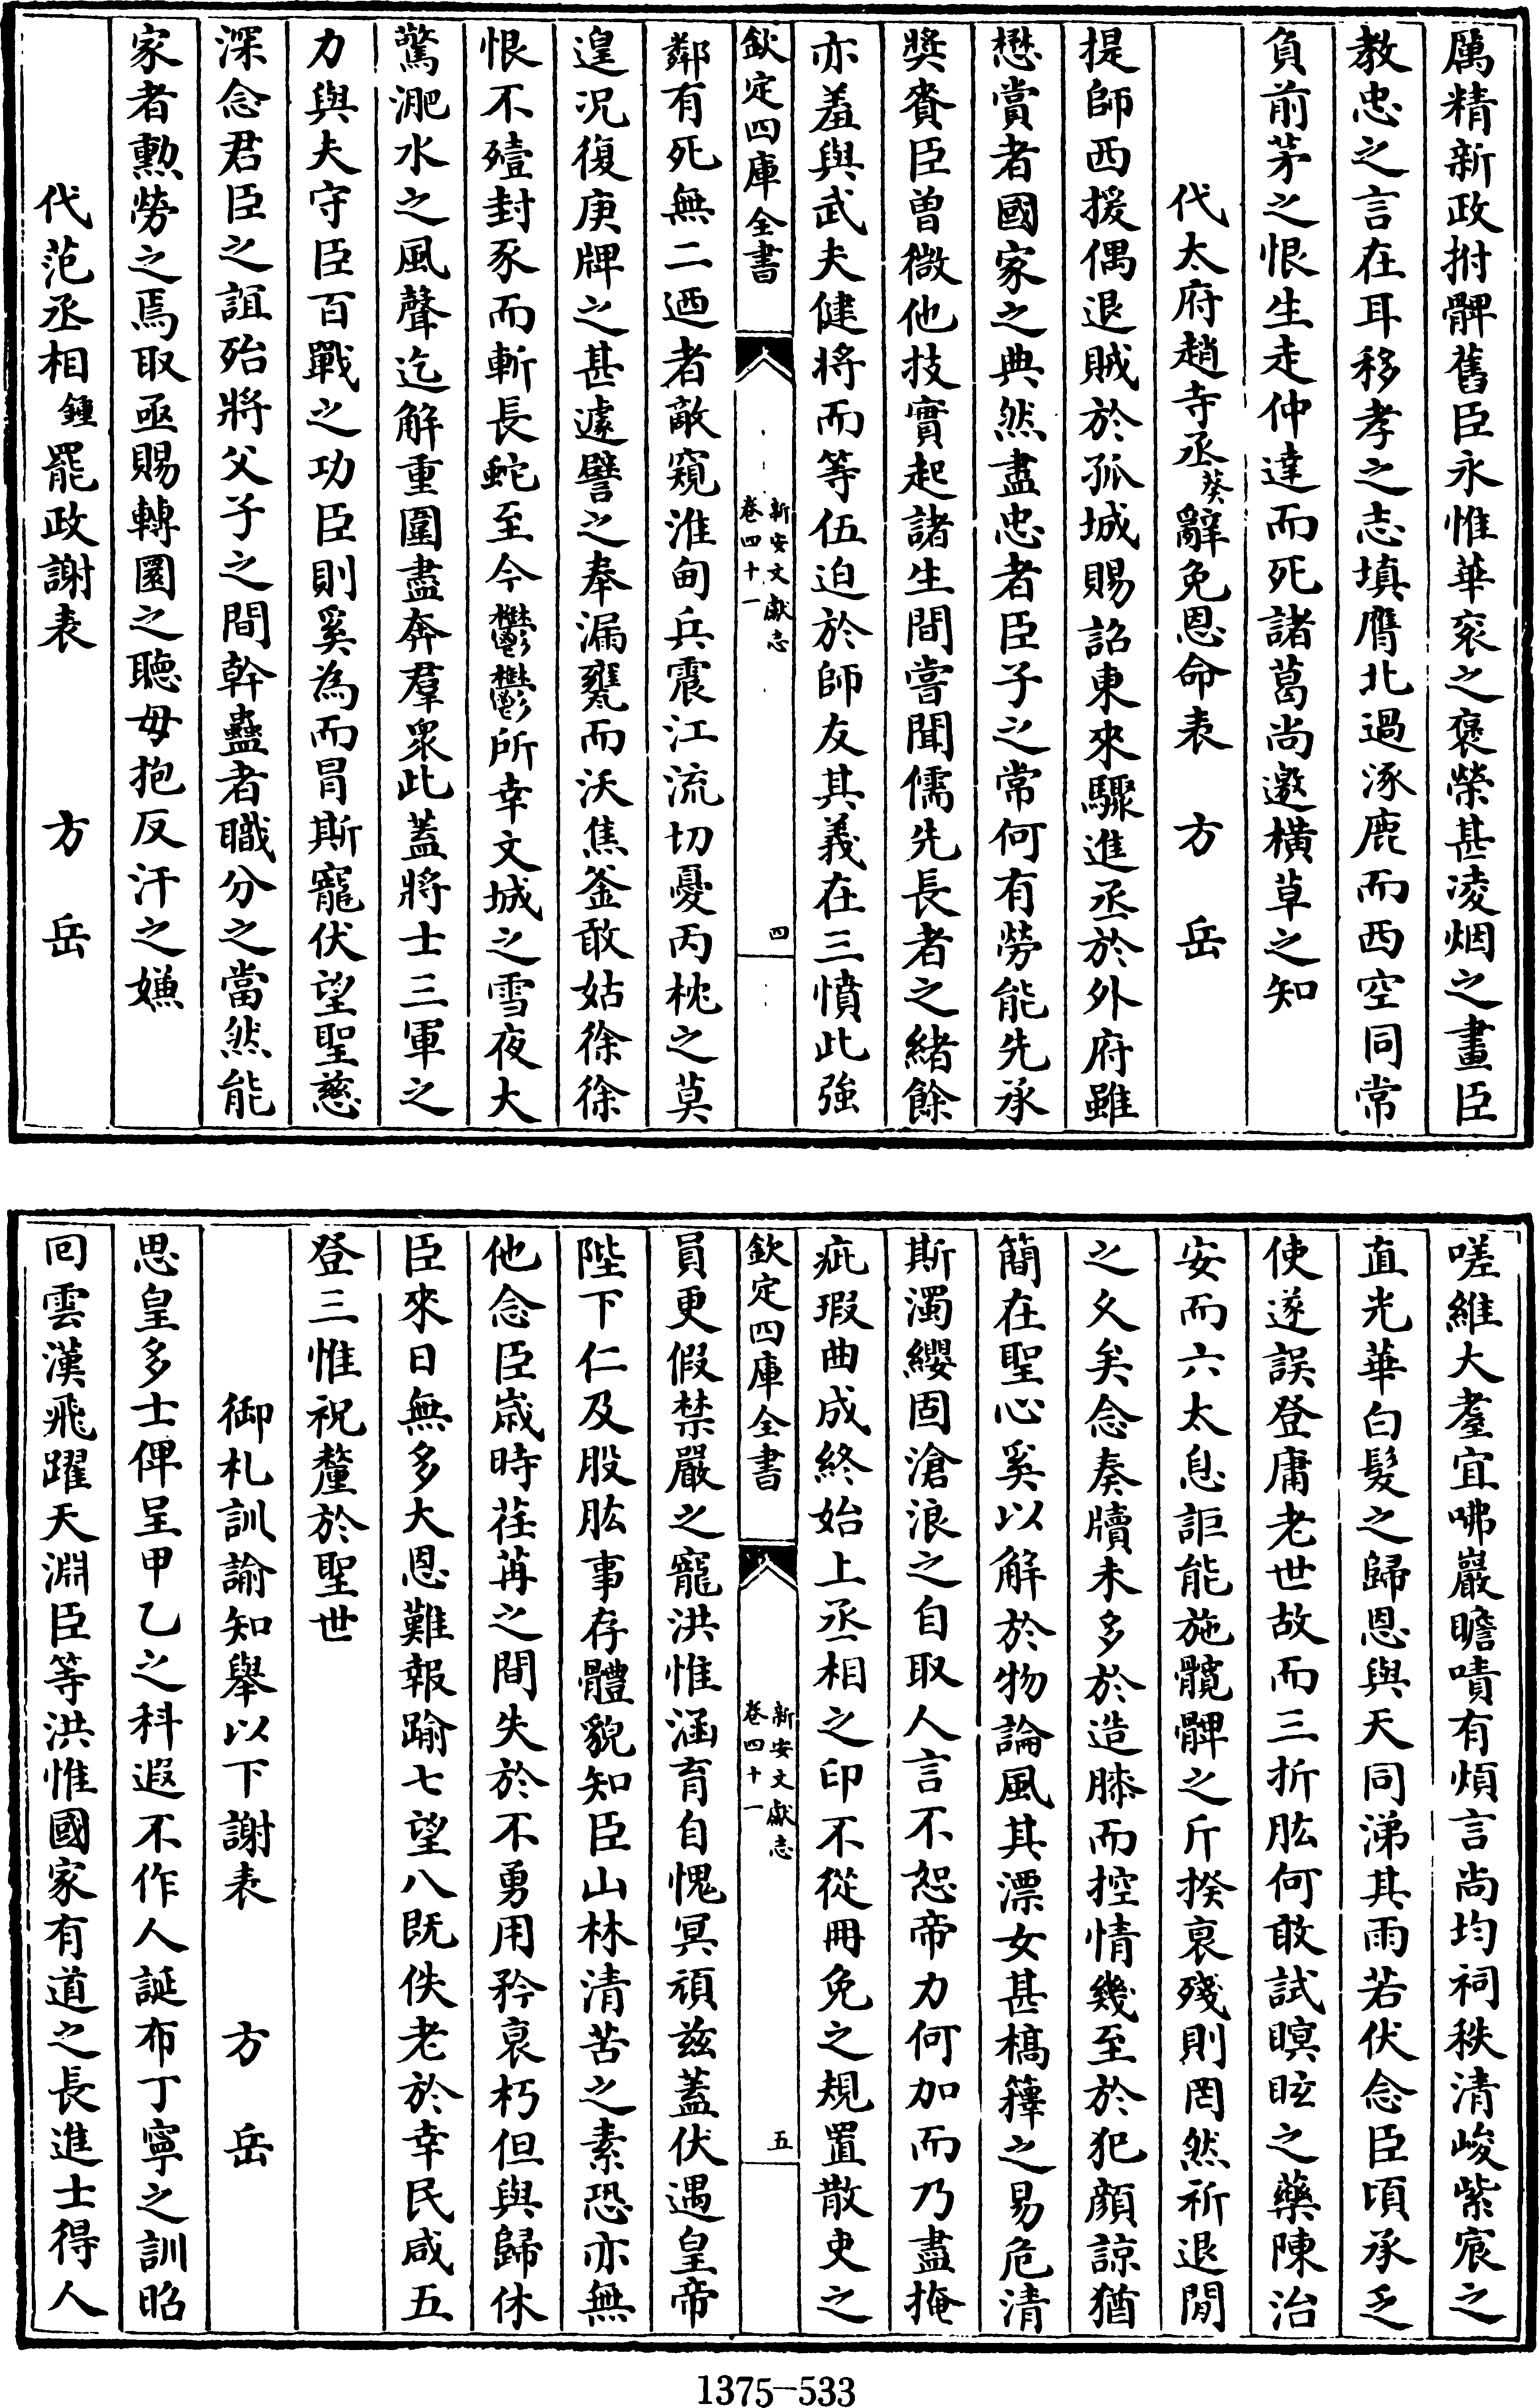 厲精新政拊髀舊臣永惟華衮之褒榮甚凌烟之畫臣
教忠之言在耳移孝之志填膺北過涿鹿而西空同常
負前茅之恨生走仲達而死諸葛尚邀横草之知
代太府趙寺丞葵辭免恩命表　方岳
提師西援偶退賊於孤城賜詔東來驟進丞於外府雖
懋賞者國家之典然盡忠者臣子之常何有勞能先承
奬賚臣曽微他技實起諸生間嘗聞儒先長者之緒餘
亦羞與武夫健将而等伍迫於師友其義在三憤此強
欽定四庫全書
新安文獻志
卷四十一
四
鄰有死無二迺者敵窺淮甸兵震江流切憂丙枕之莫
遑况復庚牌之甚遽譬之奉漏甕而沃焦釜敢姑徐徐
恨不殪封豕而斬長蛇至今鬱鬱所幸文城之雪夜大
驚淝水之風聲迄解重圍盡奔羣衆此蓋將士三軍之
力與夫守臣百戰之功臣則奚為而冒斯寵伏望聖慈
深念君臣之誼殆將父子之間幹蠱者職分之當然能
家者勲勞之焉取亟賜轉圜之聽毋抱反汗之嫌
代范丞相鍾罷政謝表　方岳
嗟維大耋宜咈巖瞻嘖有煩言尚均祠秩清峻紫宸之
直光華白髮之歸恩與天同涕其雨若伏念臣頃承乏
使遂誤登庸老世故而三折肱何敢試瞑眩之藥陳治
安而六太息詎能施髖髀之斤揆衷殘則罔然祈退閒
之久矣念奏牘未多於造膝而控情幾至於犯顔諒猶
簡在聖心奚以解於物論風其漂女甚槁籜之易危清
斯濯纓固滄浪之自取人言不恕帝力何加而乃盡掩
疵瑕曲成終始上丞相之印不從冊免之規置散吏之
欽定四庫全書
新安文獻志
卷四十一
五
員更假禁嚴之寵洪惟涵育自愧冥頑兹蓋伏遇皇帝
陛下仁及股肱事存體貌知臣山林清苦之素恐亦無
他念臣嵗時荏苒之間失於不勇用矜衷朽但與歸休
臣來日無多大恩難報踰七望八既佚老於幸民咸五
登三惟祝釐於聖世
御札訓諭知舉以下謝表　方岳
思皇多士俾呈甲乙之科遐不作人誕布丁寧之訓昭
回雲漢飛躍天淵臣等洪惟國家有道之長進士得人
1375-533